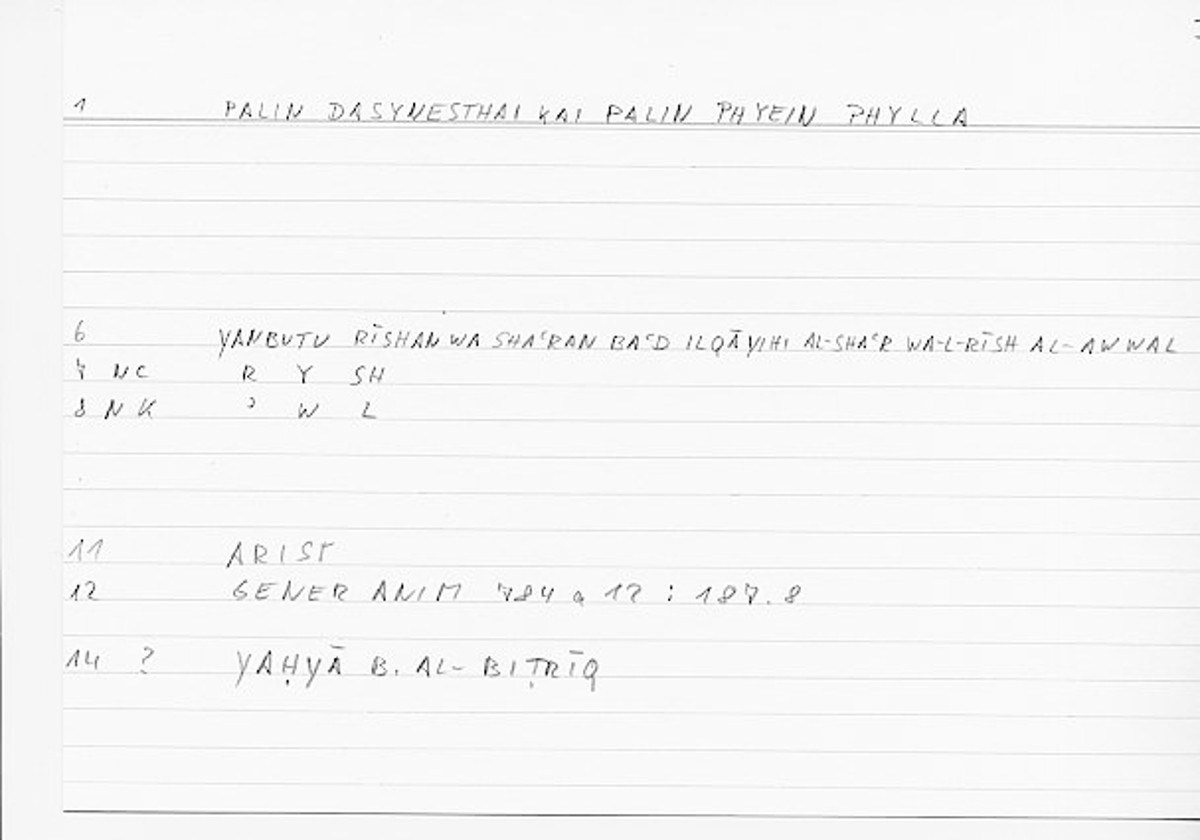 1 PALIN DASYNESTHAI KAI PALIN PHYEIN PHYLLA
6 YANBUTU RĪSHAN WA SHAʿRAN BAʿD ILQĀYIHI AL-SHAʿR WA-L-RĪSH AL-AWWAL
7 NC R Y SH
8 NK ʾ W L
11 ARIST
12 GENER ANIM 784 a 17 : 187.8
14 ? YAḤYĀ B. AL-BIṬRĪQ